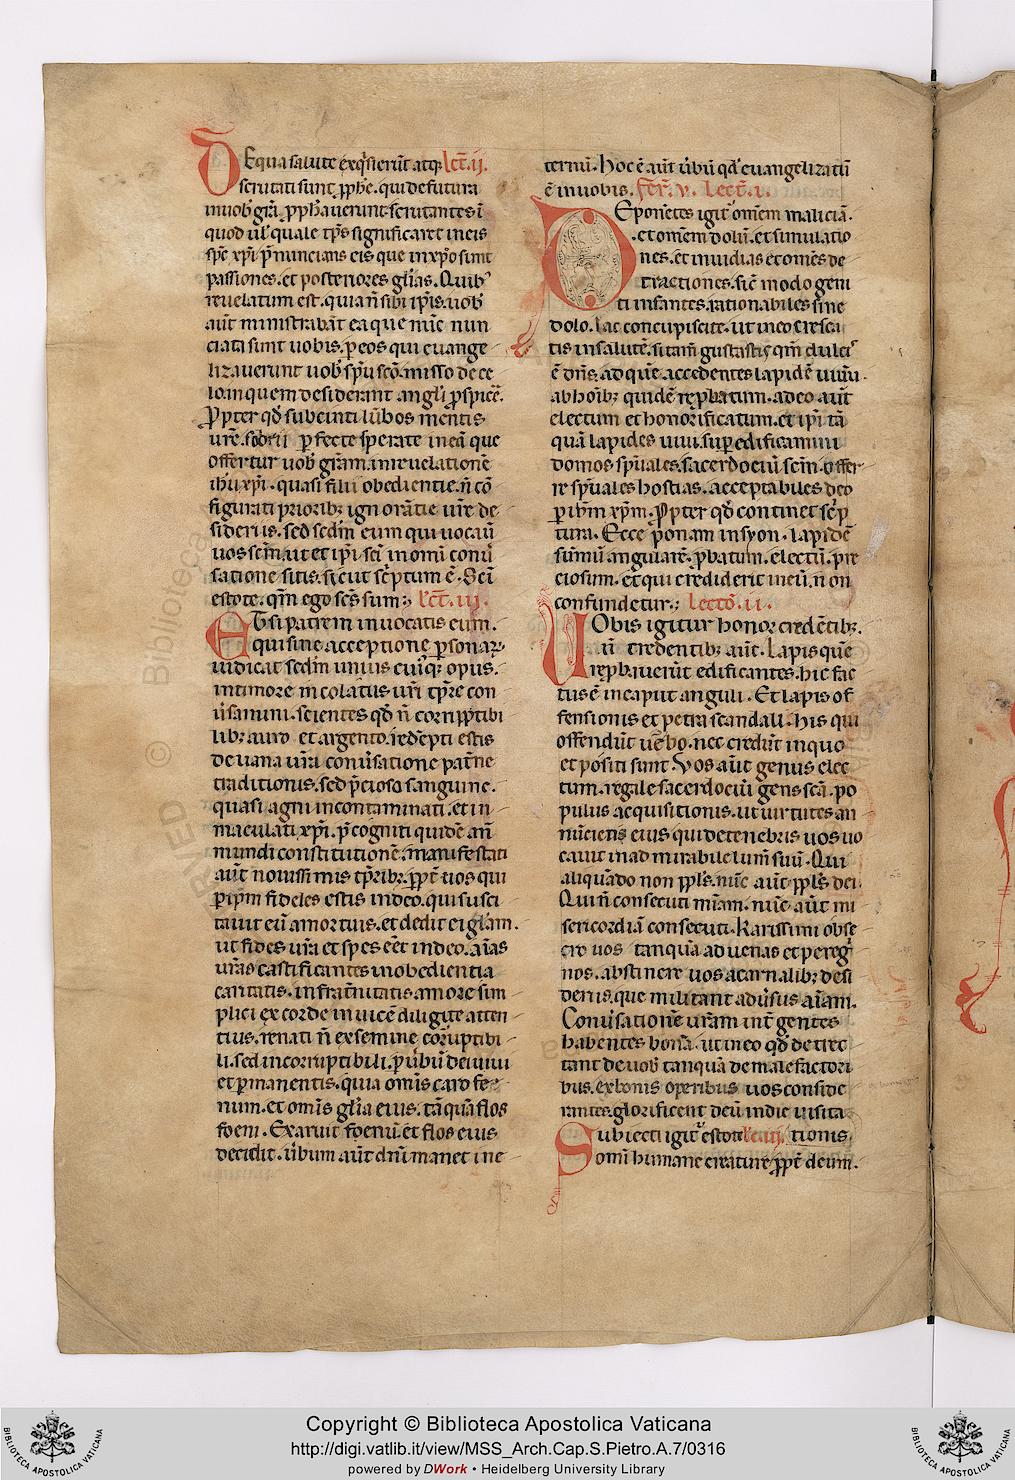 DEqua salute exq̇sierūt atq; lc̄t. ii.
scrutati sunt ꝓphe. qui de futura
in uob̄ gr̄a ꝓph̄auerunt. scrutantes ī
quod ul̓ quale tp̄s significaret in eis
sp̄c xp̄i p̄nuncians eis que in xp̄o sunt
passiones. et posteriores gl̄ias. Quib;
reuelatum est. quia n̄ sibi ip̄is. uob̄
aūt ministrabāt ea que nūc nun
ciati sunt uobis. ꝑ eos qui euange
lizauerunt uob̄ sp̄u sc̄o. misso de ce
lo. in quem desiderant angl̓i ꝓspicē.
Ꝓpter qd̄ subcincti lūbos mentis
ur̄e. sobrii ꝑfecte sperate in eā que
offertur uob̄ gr̄am. in reuelationē
ih̄u xp̄i. quasi filii obedientie. n̄ cō
figurati priorib; ignorātie ur̄e de
siderius. sed sedm̄ eum qui uocauīt
uos scm̄. ut et ip̄i sc̄i in omni conu̓
satione sitis. sicut sc̓ptum ē. Sc̄i
estote. qm̄ ego sc̄s sum. lc̄t. iii.
ET si patrem inuocatis eum.
qui sine acceptione ꝑsonar;
iudicat sedm̄ unius cuiq; opus.
in timore incolatus ur̄i tp̄re con
u̓samini. scientes qd̄ n̄ corruptibi
lib; auro et argento. redēpti estis
de uana ur̄a conu̓satione pat̄ne
traditionis. sed p̄cioso sanguine.
quasi agni incontaminati. et in
maculati xp̄i. p̄cogniti quidē an̄
mundi constitutionē. manifestati
aūt nouissimis tp̄rib; ꝓpt̄ uos qui
ꝑ ip̄m fideles estis in deo. qui susci
tauit eū a mortuis. et dedit ei gl̄am.
ut fides ur̄a et spes eēt in deo. aīas
ur̄as castificantes in obedientia
caritatis. in frat̄nitatis amore sim
plici ex corde inuicē diligite atten
tius. renati n̄ ex semine corruptibi
li. sed incorruptibili. ꝑ u̓bū dei uiui
et ꝑmanentis. quia omīs caro fe
num. et omīs gl̄ia eius. tāquā flos
foeni. Exaruit foenū. et flos eius
decidit. u̓bum aūt dn̄i manet in e
ternū. hoc ē aūt u̓bū qd̄ euangelizatū
ē in uobis. fer̄. v. Lect̄. i.
DEponētes igit̄ omēm maliciā.
et omēm dolū. et simulatio
nes. et inuidias et omēs de
tractiones. sic̄ modo geni
ti infantes. rationabiles sine
dolo. lac concupiscite. ut in eo cresca
tis in salutē. si tam̄ gustastis qm̄ dulcis
ē dn̄s. ad quē accedentes lapidē uiuū.
ab hoīb; quidē reꝓbatum. a deo aūt
electum et honorificatum. et ip̄i tā
quā lapides uiui. suꝑedificamini
domos sp̄uales. sacerdociū scm̄. offer
re sp̄uales hostias. acceptabiles deo
ꝑ ih̄m xp̄m. Ꝓpter qd̄ continet sc̓p
tura. Ecce ponam in syon. lapidē
sūmū angularē. ꝓbatum. electū. pre
ciosum. et qui crediderit in eū. non
confundetur. Lectō. ii.
UObis igitur honor credētib;.
n̄ credentib; aūt. Lapis quē
reꝓbauerūt edificantes. hic fac
tus ē in caput anguli. Et lapis of
fensionis et petra scandali. his qui
offendūt u̓bo. nec credūt in quo
et positi sunt. Vos aūt genus elec
tum. regale sacerdociū gens scā. po
pulus acquisitionis. ut uirtutes an
nūcietis eius qui de tenebris uos uo
cauit in admirabile lum̄ suū. Qui
aliquādo non ppl̓s. nūc aūt ppl̓s dei.
Qui n̄ consecuti mīam. nūc aūt mi
sericordiā consecuti. Karissimi obse
cro uos tanquā aduenas et peregi̓
nos. abstinere uos a carnalib; desi
deriis. que militant aduersus aīam.
Conu̓sationē ur̄am int̄ gentes
habentes bonā. ut in eo qd̄ detrec
tant de uob̄ tanquā de malefactori
bus. ex bonis operibus uos conside
rantes. glorificent deū in die uisita
Subiecti igit̄ estote lc̄. iij. tionis.
omī humane creature ꝓpt̄ deum.
Copyright © Biblioteca Apostolica Vaticana
http://digi.vatlib.it/view/MSS_Arch.Cap.S.Pietro.A.7/0316
powered by DWork • Heidelberg University Library
BIBLIOTECA APOSTOLICA VATICANA
BIBLIOTECA APOSTOLICA VATICANA